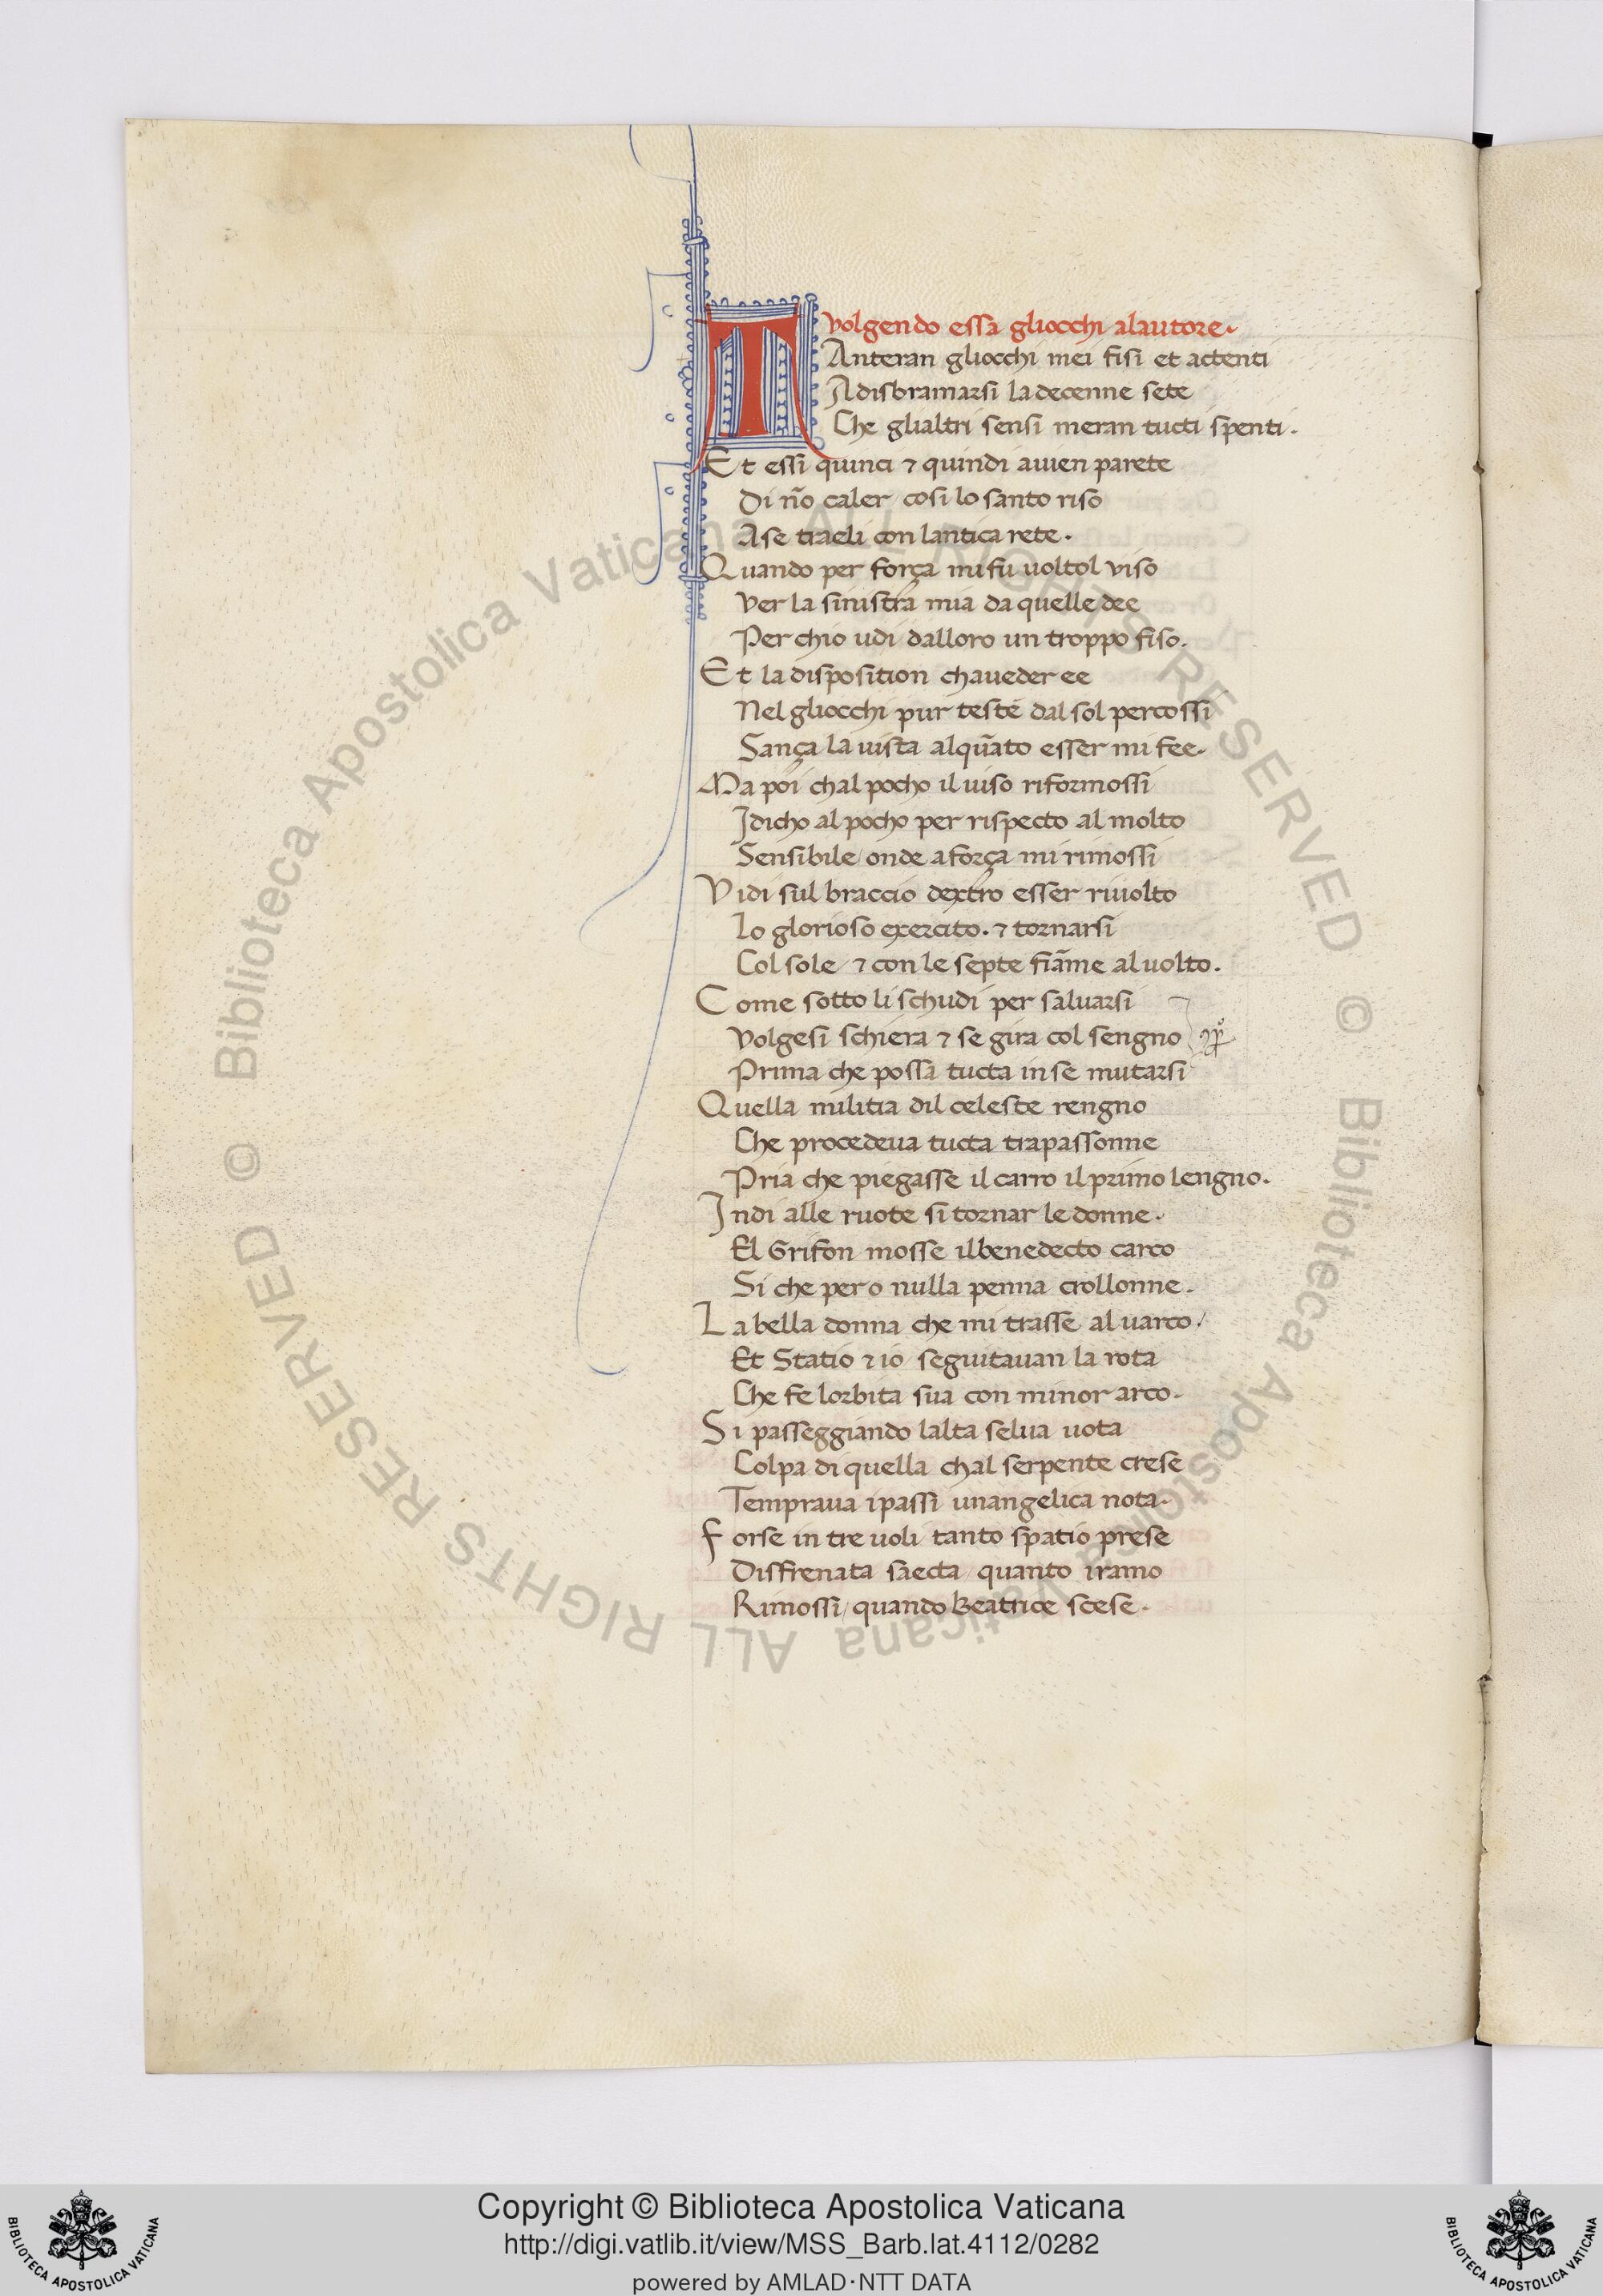 volgendo essa gliocchi alautore.
TAnteran gliocchi mei fisi et actenti
Adisbramarsi ladecenne sete
Che glialtri sensi meran tucti spenti.
Et essi quinci ⁊ quindi auien parete
Di nõ caler / cosi lo santo riso
Ase traeli con lantica rete.
Quando per força mi fu uoltol viso
Ver la sinistra mia da quelle dee
Per chio udi dalloro un troppo fiso.
Et la disposition chaueder ee
Nel gliocchi pur testé dal sol percossi
Sança la uista alquãto esser mi fee.
Ma poi chal pocho il uiso riformossi
Idicho al pocho per rispecto al molto
Sensibile / onde a força mi rimossi
Vidi sul braccio dextro esser riuolto
Lo glorioso exercito. ⁊ tornarsi
Col sole / ⁊ con le septe fiãme al uolto.
Come sotto li schudi per saluarsi
Volgesi schiera ⁊ se gira col sengno
Prima che possa tucta in se mutarsi
Quella militia dil celeste rengno
Che procedeua tucta trapassonne
Pria che piegasse il carro il primo lengno.
Indi alle ruote si tornar le donne.
El Grifon mosse il benedecto carco
Si che pero nulla penna crollonne.
La bella donna che mi trasse al uarco /
Et Statio ⁊ io seguitauan la rota
Che fe lorbita sua con minor arco.
Si passeggiando lalta selua uota
Colpa di quella chal serpente crese
Tempraua i passi unangelica nota.
Forse in tre uoli tanto spatio prese
Disfrenata saecta / quanto iramo
Rimossi / quando Beatrice scese.
© Biblioteca Apostolica Vaticana ALL RIGHTS RESERVED © Biblioteca Apostolica Vaticana ALL RIGHTS RESERVED
Copyright © Biblioteca Apostolica Vaticana
http://digi.vatlib.it/view/MSS_Barb.lat.4112/0282
powered by AMLAD·NTT DATA
BIBLIOTECA APOSTOLICA VATICANA
BIBLIOTECA APOSTOLICA VATICANA